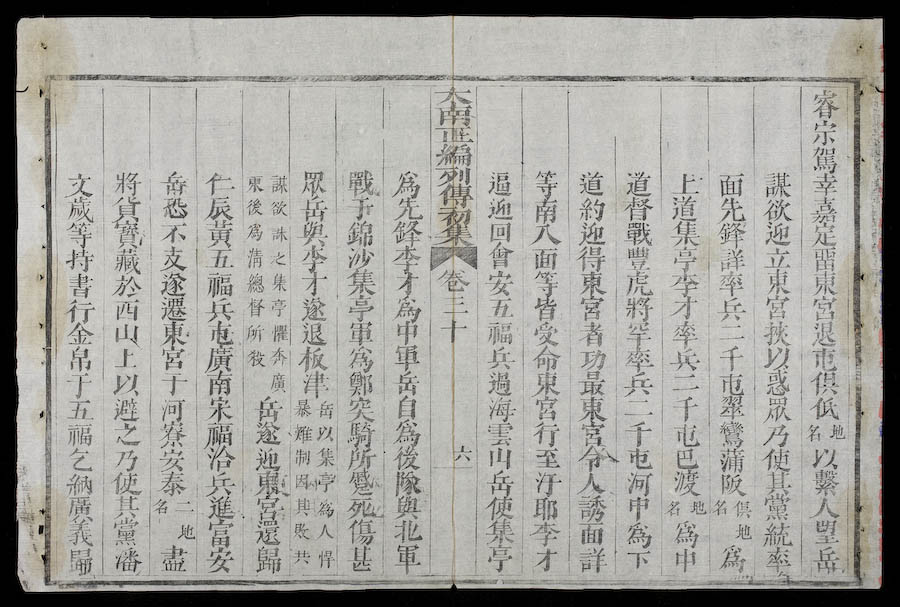 睿宗駕幸嘉定畱東宮退屯俱低地名以繫人望岳
謀欲迎立東宮挾以惑眾乃使其黨統率
面先鋒詳率兵二千屯翠鸞蒲阪俱地名為
上道集亭李才率兵二千屯巴渡地名為中
道督戰豐虎將罕率兵二千屯河中為下
道約迎得東宮者功最東宮令人誘面詳
等南八面等皆受命東宮行至汙耶李才
逼迎回會安五福兵過海雲山岳使集亭
大南正編列傳初集 卷三十 六
為先鋒李才為中軍岳自為後隊與北軍
戰于錦沙集亭軍為鄭突騎所蹙死傷甚
眾岳與李才遂退板津岳以集亭為人悍暴難制因其敗共
謀欲誅之集亭懼奔廣東後為清總督所殺岳遂迎東宮還歸
仁辰黃五福兵屯廣南宋福洽兵進富安
岳恐不支遂遷東宮于河寮安泰二地名盡
將貨寶藏於西山上以避之乃使其黨潘
文歲等持書行金帛于五福乞納廣義歸